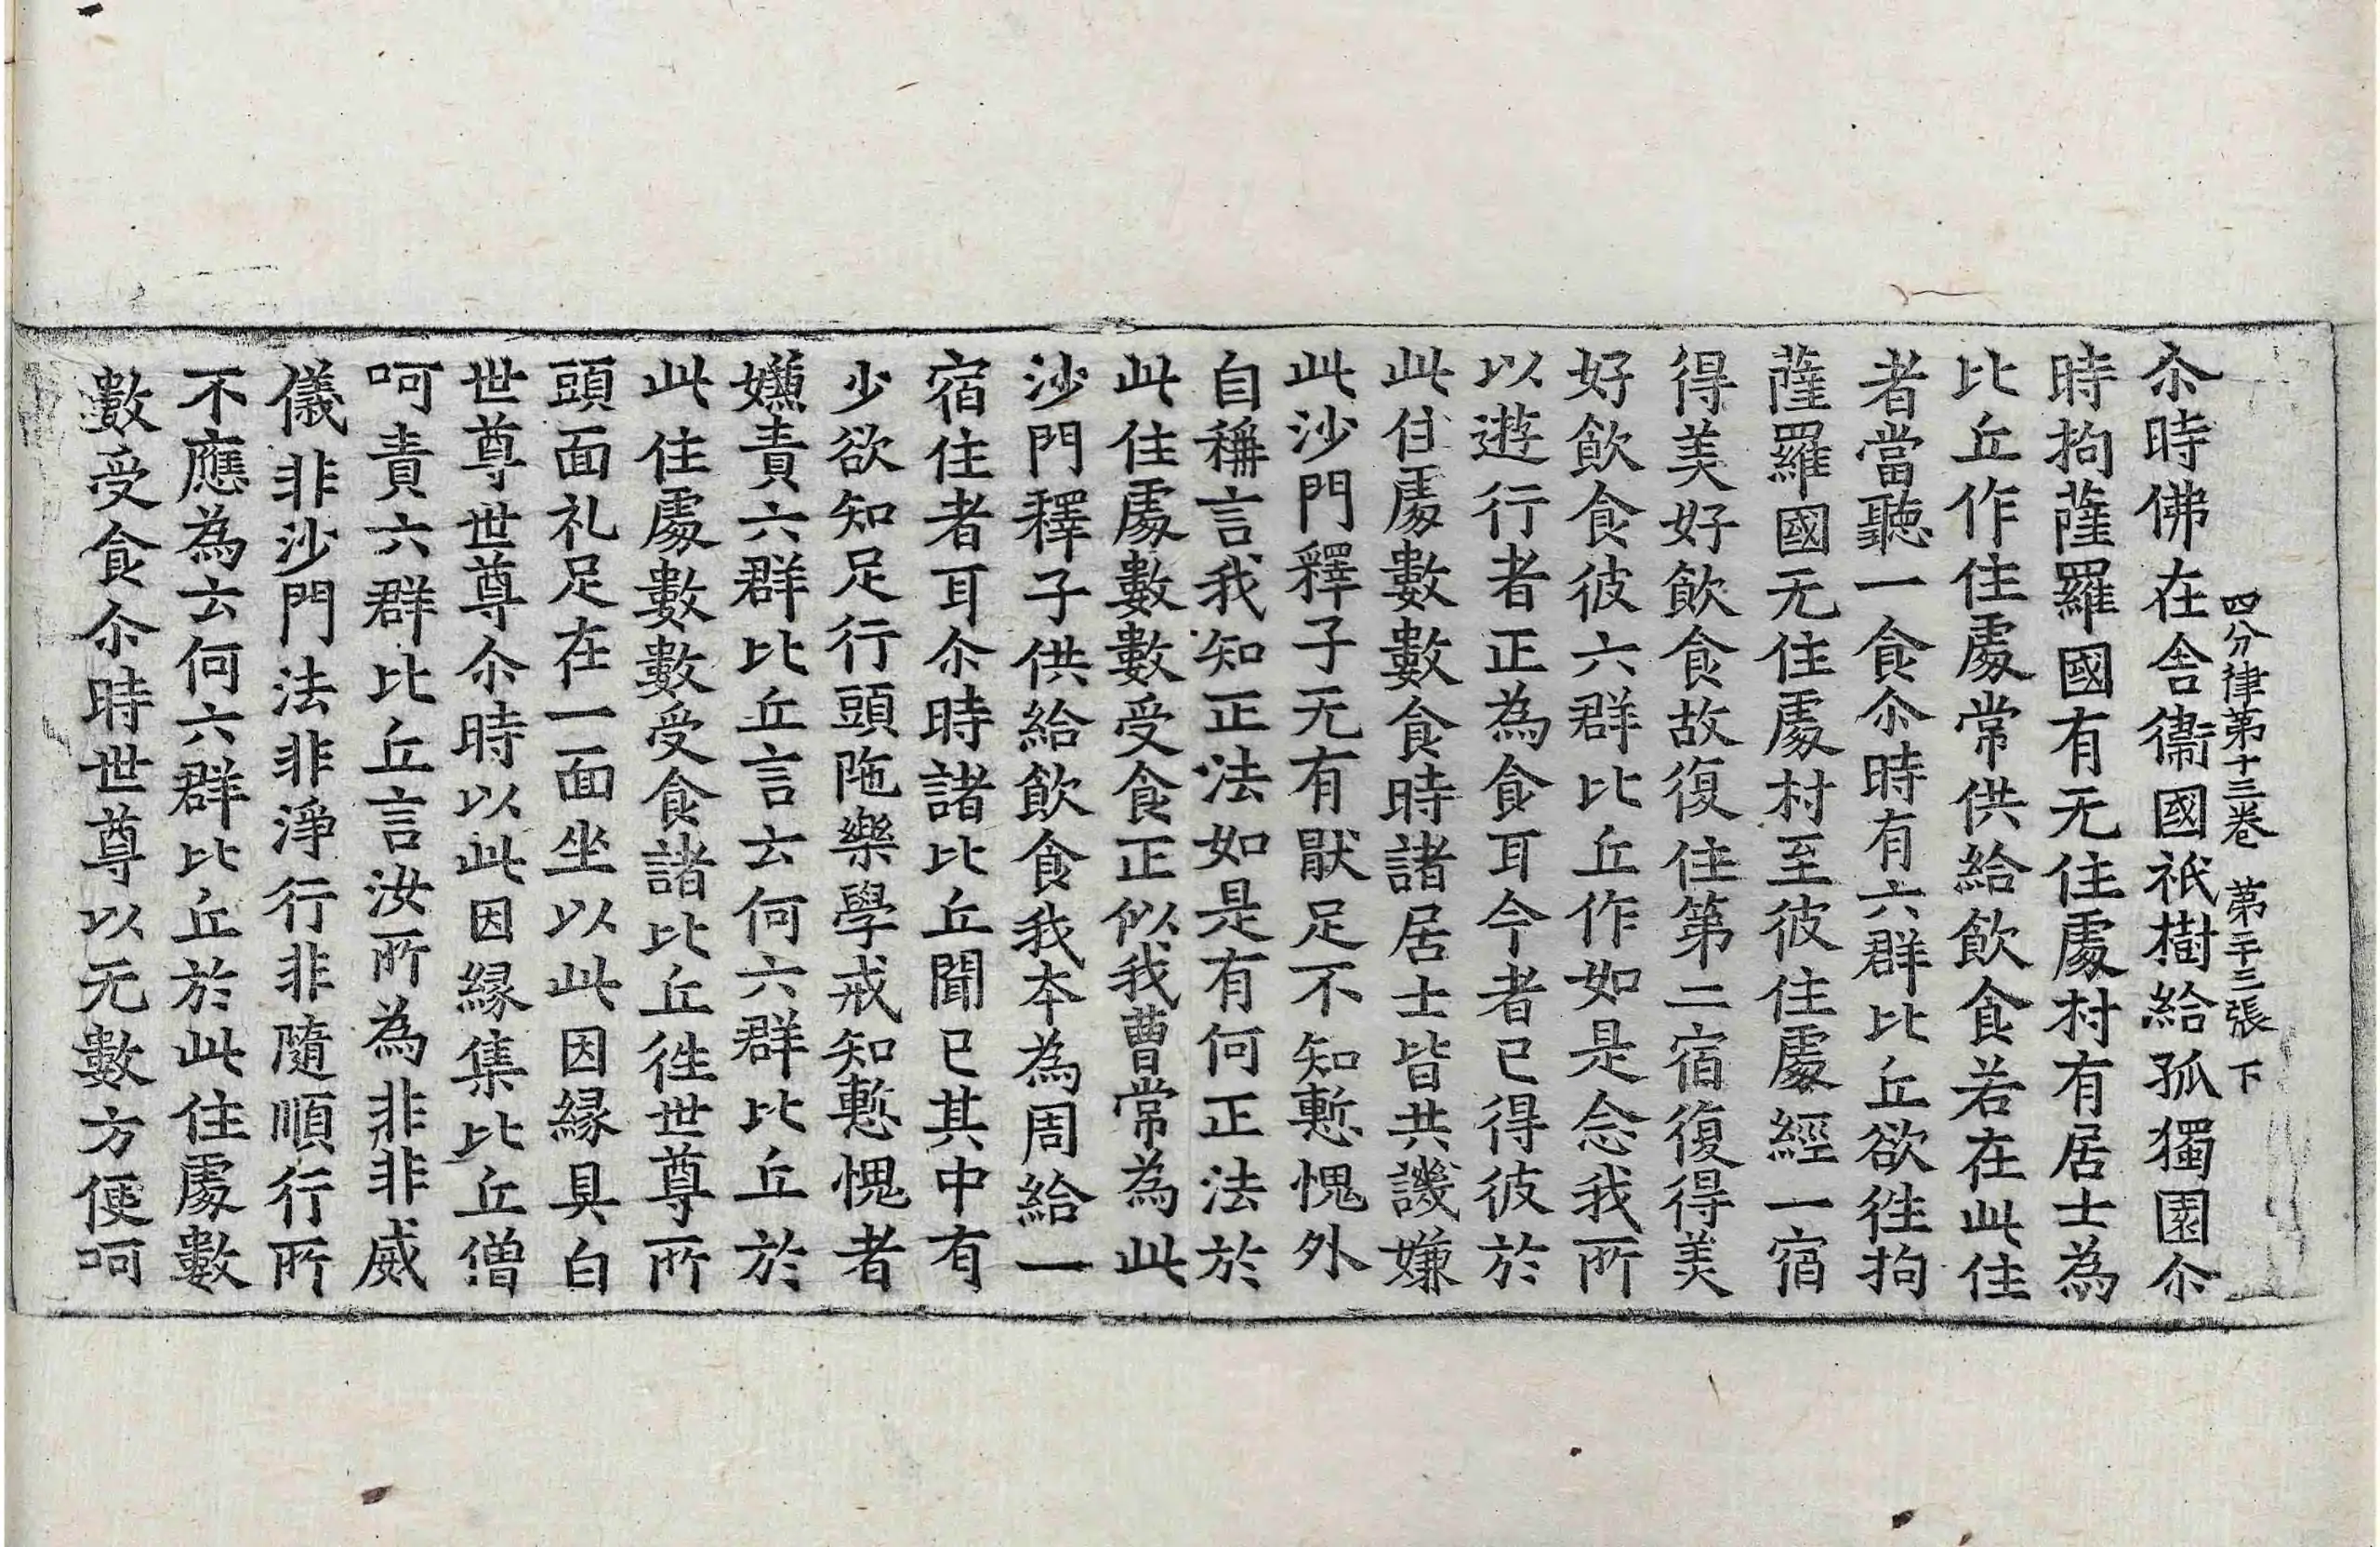 四分律第十三卷　第二十三張　下
尒時佛在舍衞國祇樹給孤獨園尒
時拘薩羅國有无住處村有居士為
比丘作住處常供給飲食若在此住
者當聽一食尒時有六群比丘欲徃拘
薩羅國无住處村至彼住處經一宿
得美好飲食故復住第二宿復得美
好飲食彼六群比丘作如是念我所
以遊行者正為食耳今者已得彼於
此住處數數食時諸居士皆共譏嫌
此沙門釋子无有猒足不知慙愧外
自稱言我知正法如是有何正法於
此住處數數受食正似我曹常為此
沙門釋子供給飲食我本為周給一
宿住者耳尒時諸比丘聞已其中有
少欲知足行頭陁樂學戒知慙愧者
嫌責六群比丘言云何六群比丘於
此住處數數受食諸比丘徃世尊所
頭面礼足在一面坐以此因緣具白
世尊世尊尒時以此因緣集比丘僧
呵責六群比丘言汝所為非非威
儀非沙門法非淨行非隨順行所
不應為云何六群比丘於此住處數
數受食尒時世尊以无數方便呵